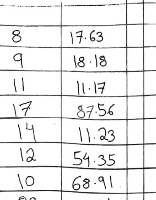 8 17.63
9 18.18
11 11.17
17 87.56
14 11.23
12 54.35
10 68.91